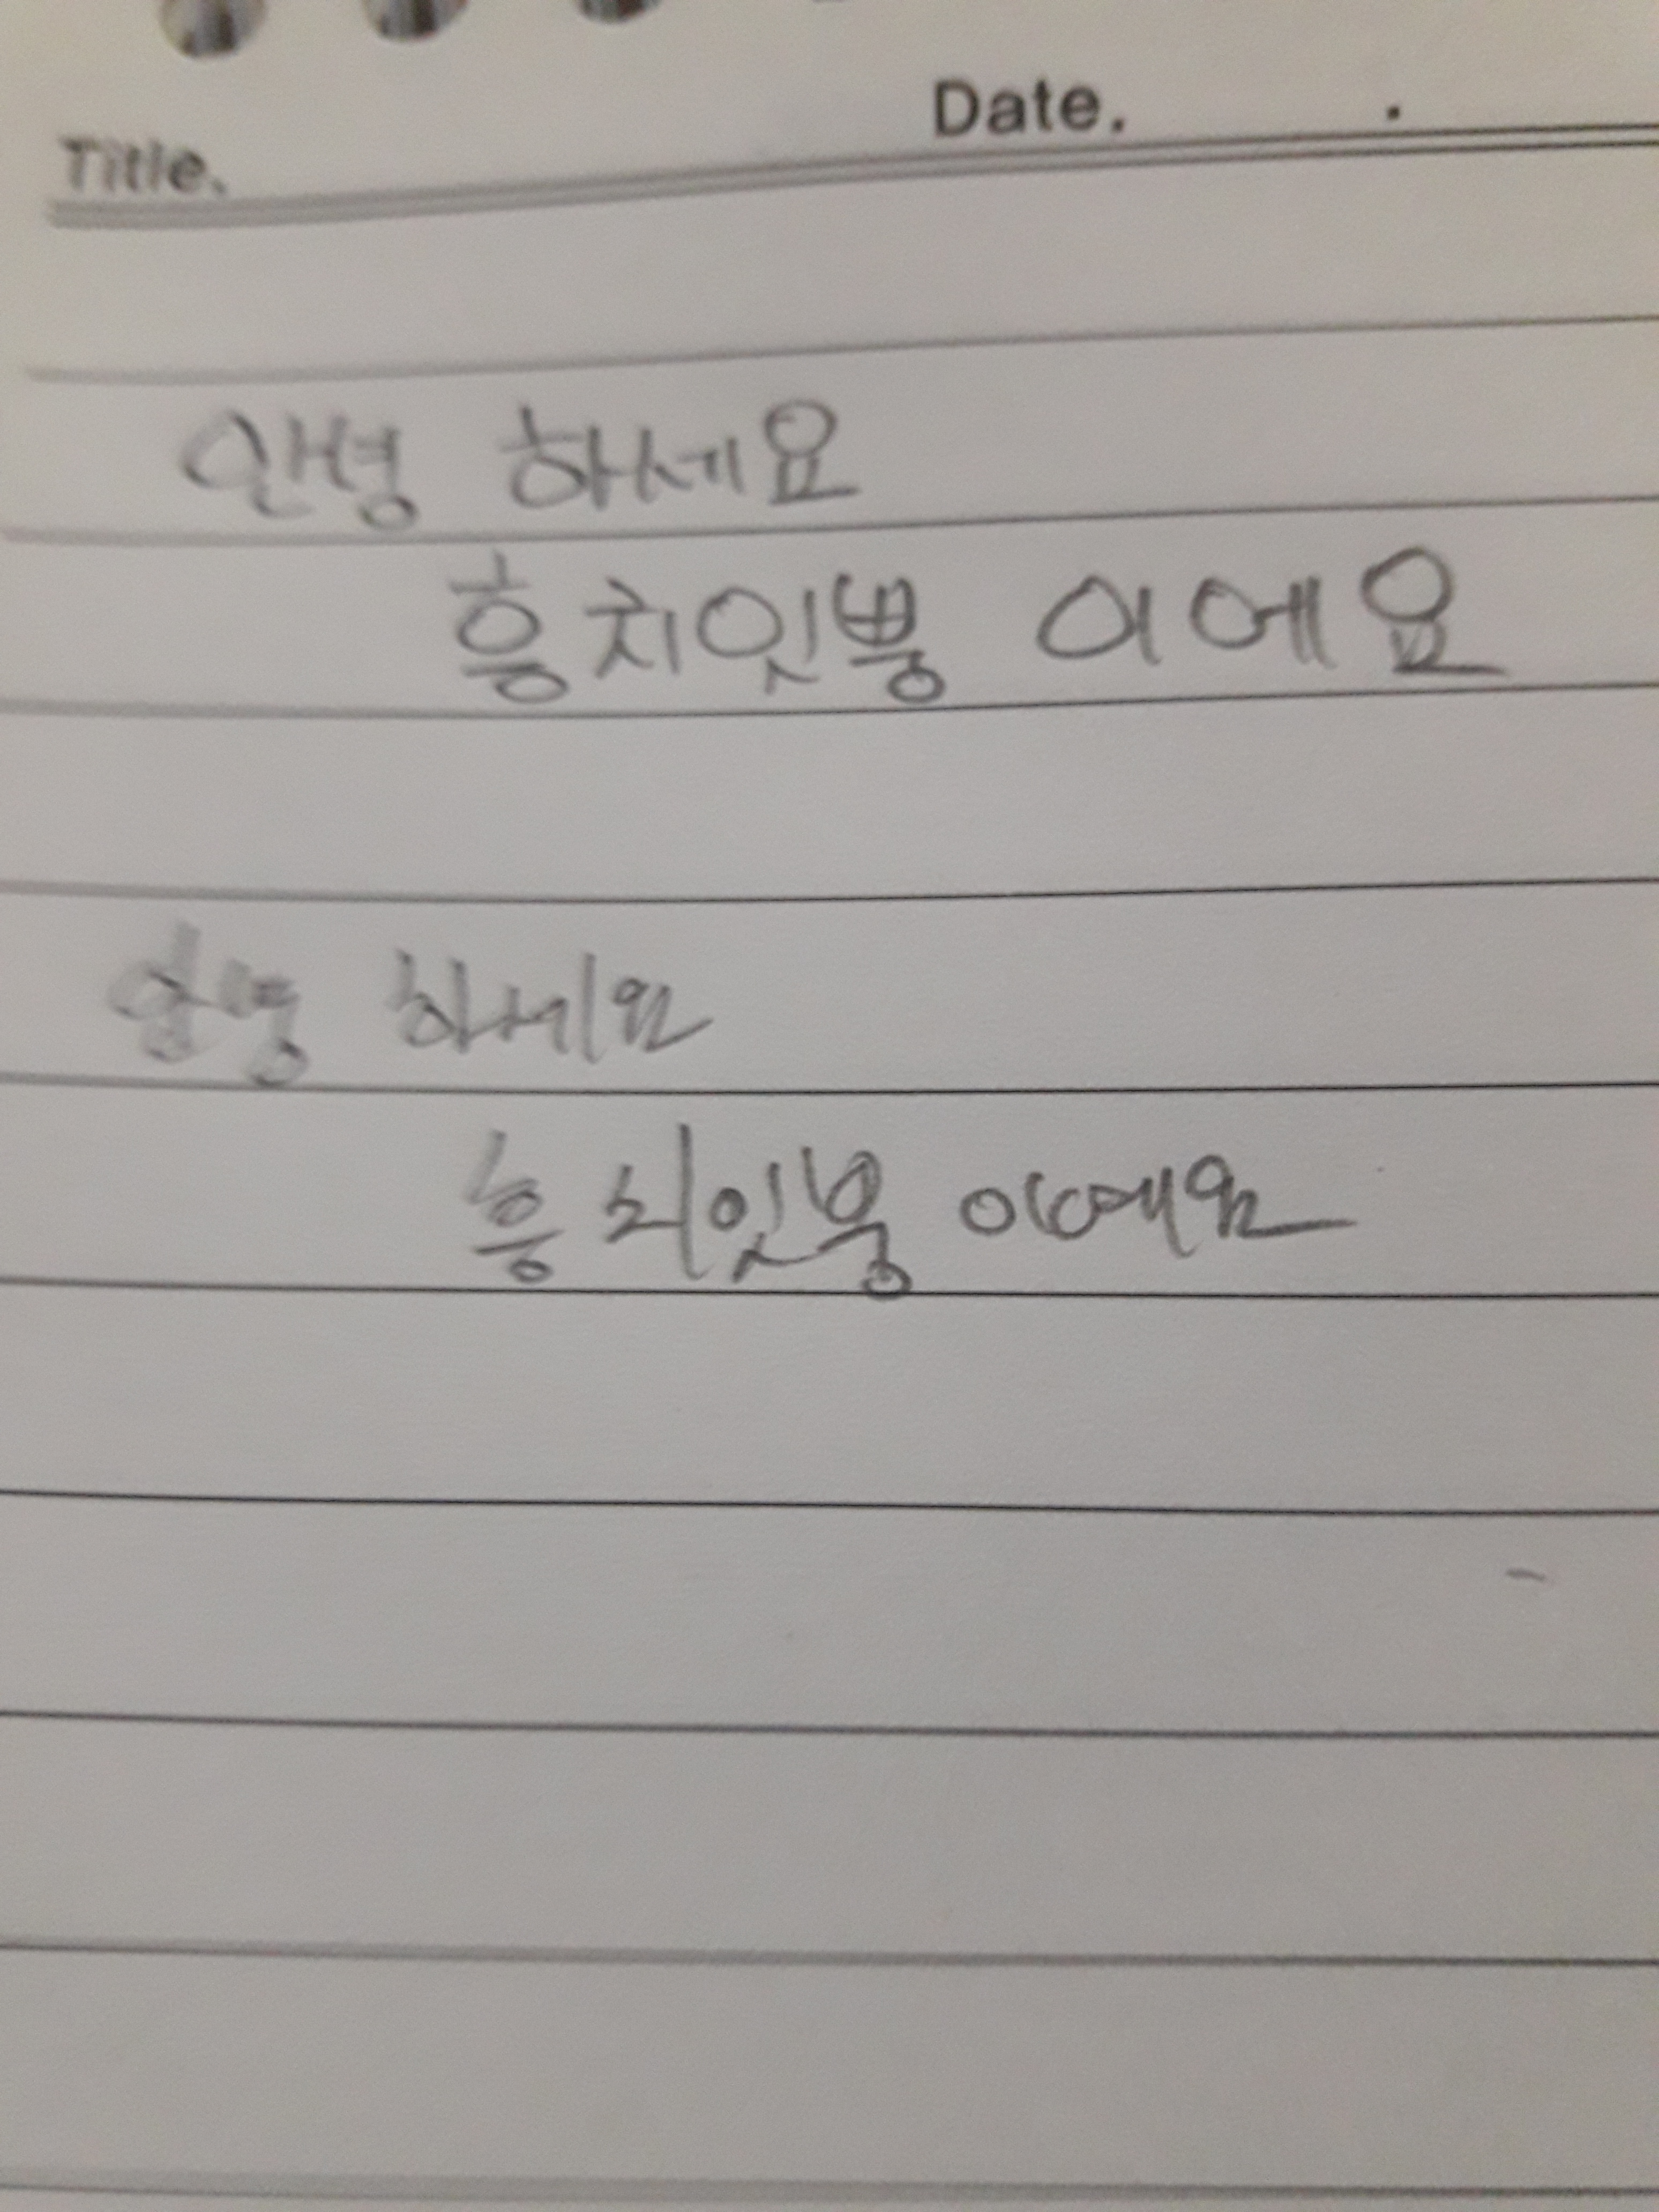 Date. .
Title.
안녕 하세요
흥치잇뿡 이에요
안녕 하세요
흥치잇뿡 이에요